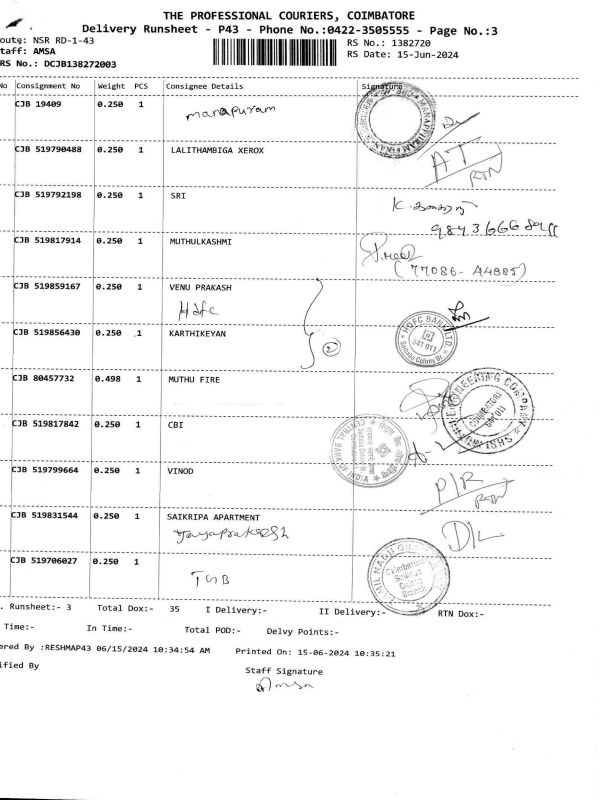 THE PROFESSIONAL COURIERS, COIMBATORE
Delivery Runsheet - P43 - Phone No.:0422-3505555 - Page No.:3
oute: NSR RD-1-43
RS No.: 1382720
taff: AMSA
RS Date: 15-Jun-2024
RS No.: DCJB138272003
No Consignment No Weight PCS Consignee Details Signature
CJB 19409 0.250 1 manapuram
CJB 519790488 0.250 1 LALITHAMBIGA XEROX AT
RTN
CJB 519792198 0.250 1 SRI
CJB 519817914 0.250 1 MUTHULKASHMI
(77086-44885)
CJB 519859167 0.250 1 VENU PRAKASH
Hdfc
HDFC BANK LTD
641 011
CJB 519856430 0.250 1 KARTHIKEYAN
2
CJB 80457732 0.498 1 MUTHU FIRE
COIMBATORE
641 011
CJB 519817842 0.250 1 CBI
CENTRAL BANK OF INDIA
CJB 519799664 0.250 1 VINOD P/R
RTN
CJB 519831544 0.250 1 SAIKRIPA APARTMENT D/L
Jayaprakash
CJB 519706027 0.250 1
TGB
Coimbatore
. Runsheet:- 3 Total Dox:- 35 I Delivery:- II Delivery:- RTN Dox:-
Time:- In Time:- Total POD:- Delvy Points:-
ered By :RESHMAP43 06/15/2024 10:34:54 AM Printed On: 15-06-2024 10:35:21
ified By
Staff Signature